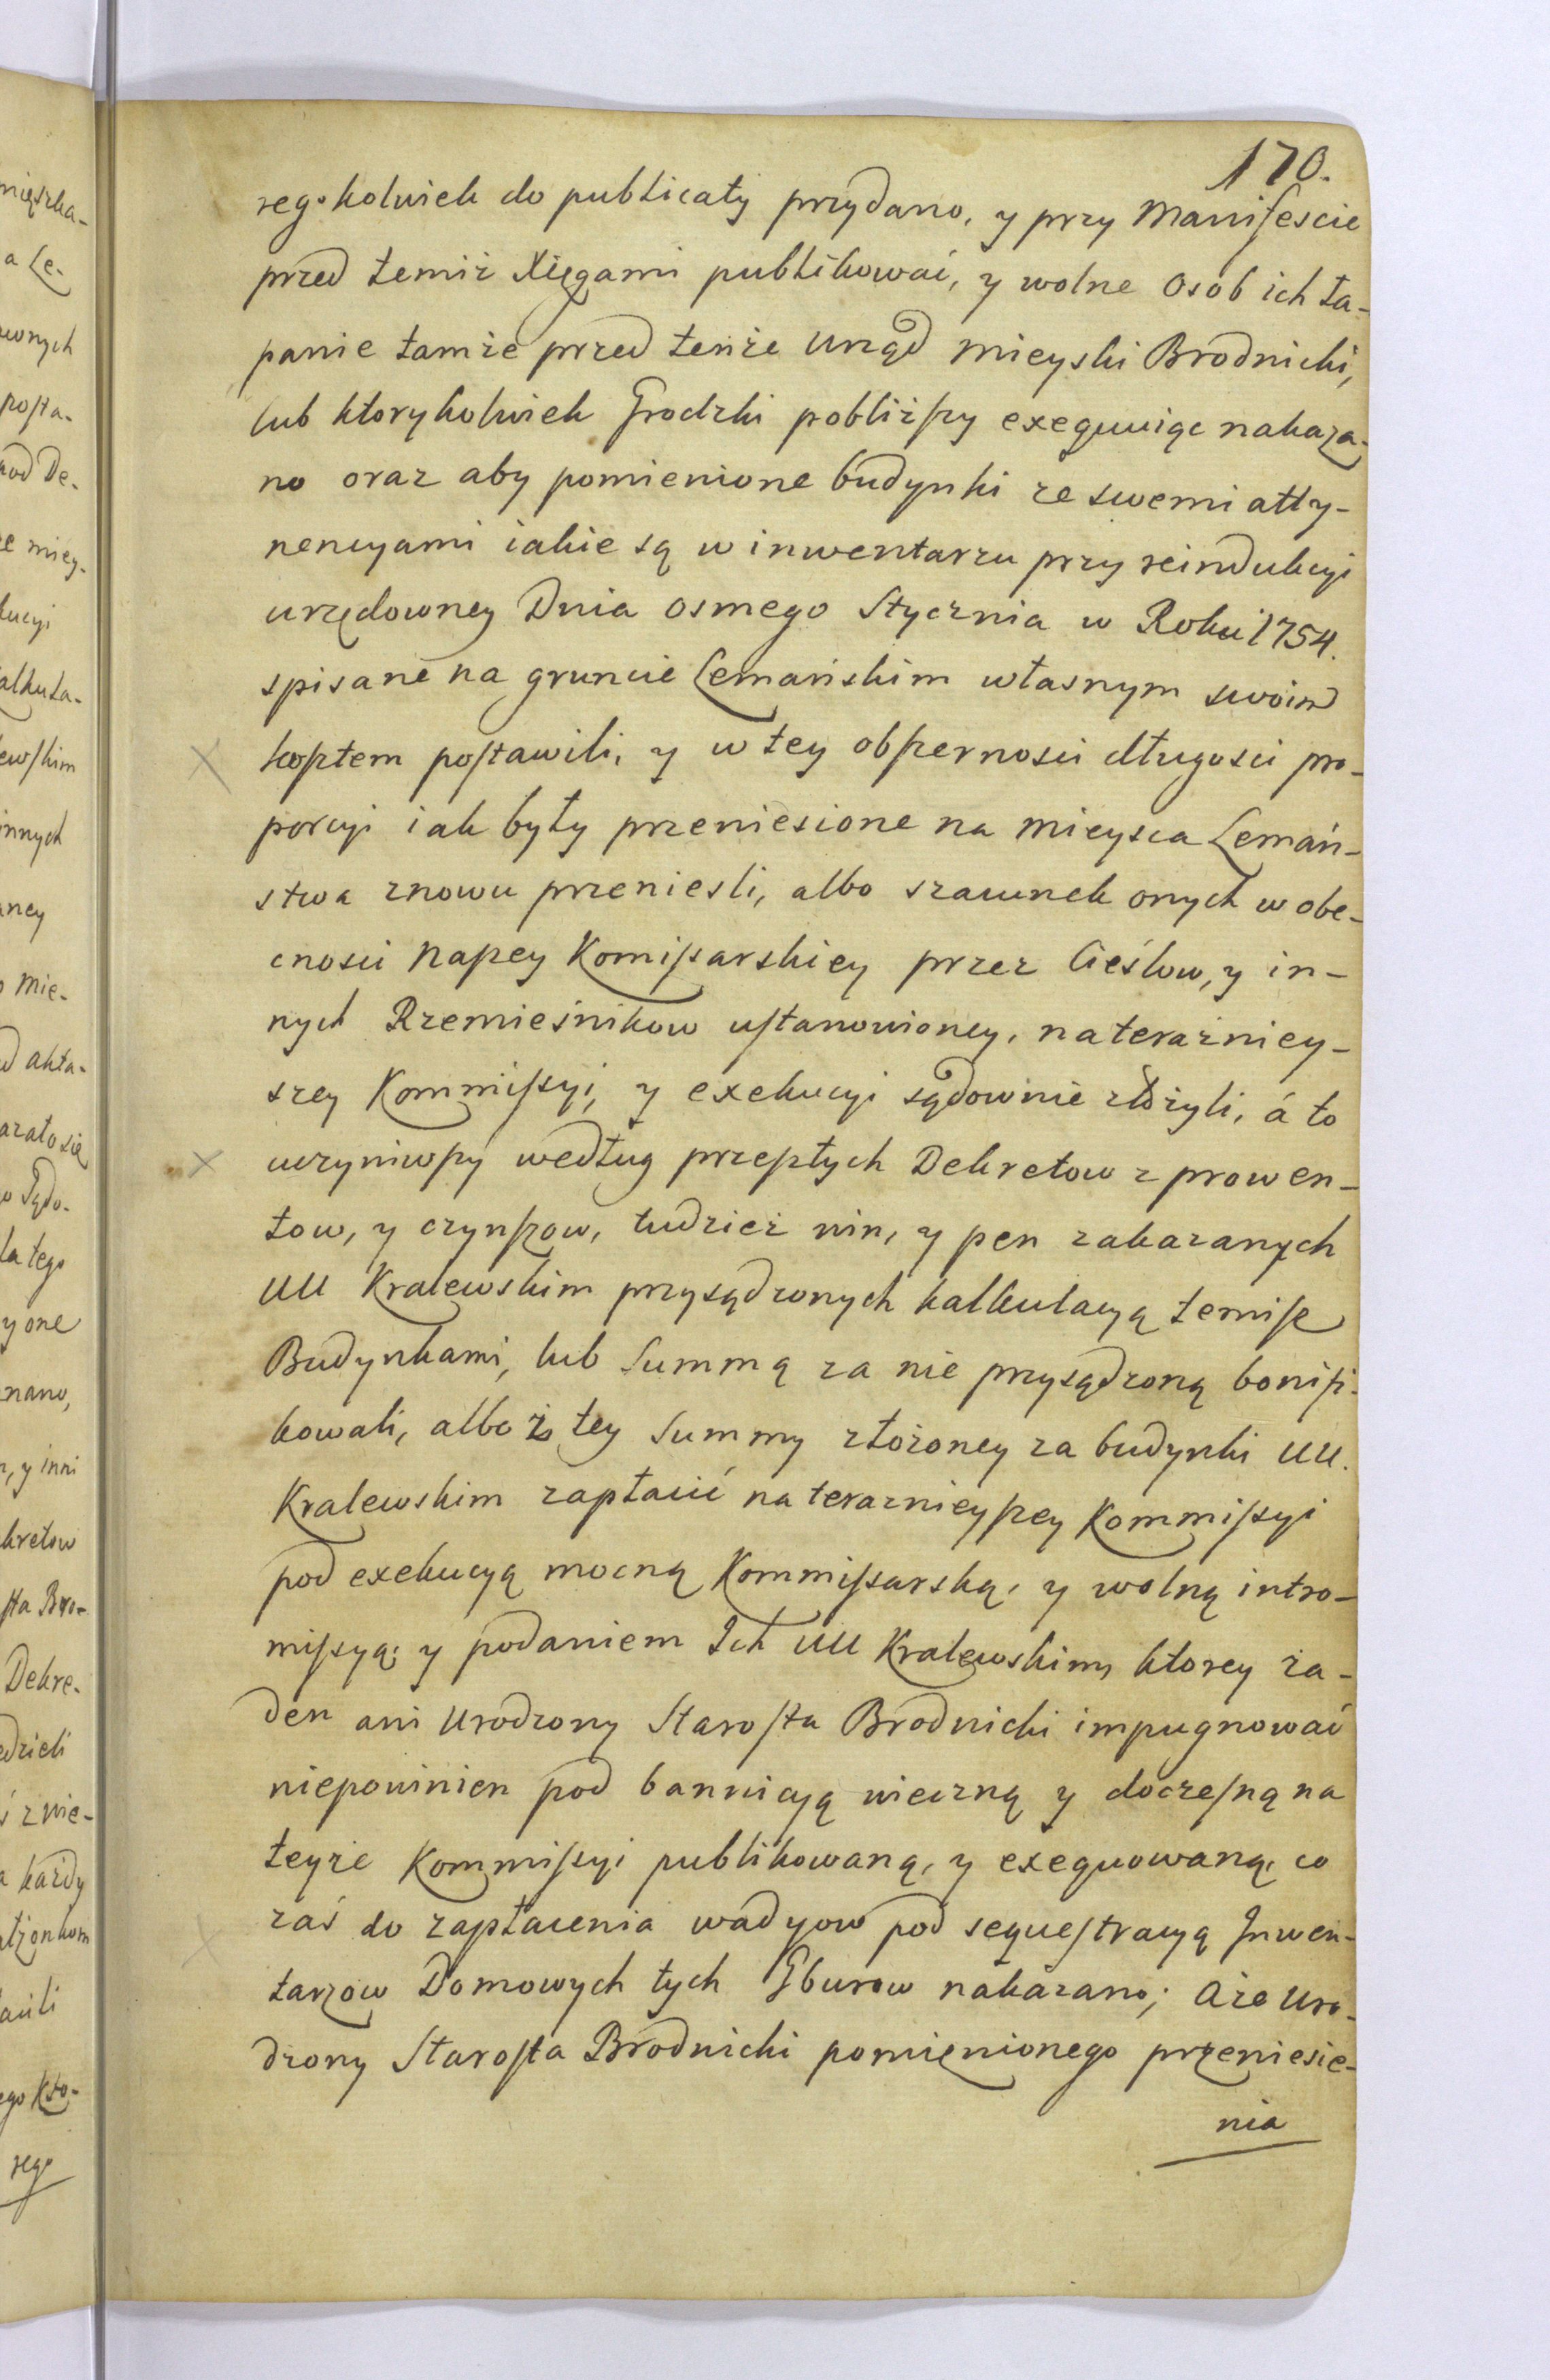 170.
regokolwiek do publicaty przydano, y przy Manifescie
przed temiż Xięgami publikować, y wolne Osob ich ła-
panie tamże przed tenże Urząd Mieyski Brodnicki,
lub ktorykolwiek Grodzki pobliższy exequuiąc nakaza-
no oraz aby pomienione budynki ze swemi atty-
nencyami iakie są w inwentarzu przy reindukcyi
urzędowney Dnia osmego Stycznia w Roku 1754.
spisane na gruncie Lemańskim własnym swoim
kosztem postawili, y w tey obszernosci długosci pro-
porcyi iak były przeniesione na Mieysca Lemań-
stwa znowu przeniesli, albo szacunek onych w obe-
cnosci Naszey Komissarskiey przez Cieślow, y in-
nych Rzemieśnikow ustanowioney, na teraźniey-
szey Kommissyi, y exekucyi sądownie złożyli, á to
uczyniwszy według przeszłych Dekretow z prowen-
tow, y czynszow, tudzież win, y pen zakazanych
UU Kralewskim przysądzonych kalkulacyą temisz
Budynkami, lub Summą za nie przysądzoną bonifi-
kowali, albo z tey Summy złożoney za budynki UU.
Kralewskim zapłacić na terazńieyszey Kommissyi
pod exekucyą mocną Kommissarską, y wolną intro-
missyą, y podaniem Ich UU Kralewskim, ktorey ża-
den ani Urodzony Starosta Brodnicki impugnować
niepowinien pod bannicyą wieczną y doczesną na
teyże Kommissyi publikowaną, y exequowaną, co
zaś do zapłacenia wadyow pod sequestracyą Inwen-
tarzow Domowych tych Gburow nakazano; Aże Uro-
dzony Starosta Brodnicki pomienionego przeniesie-
nia